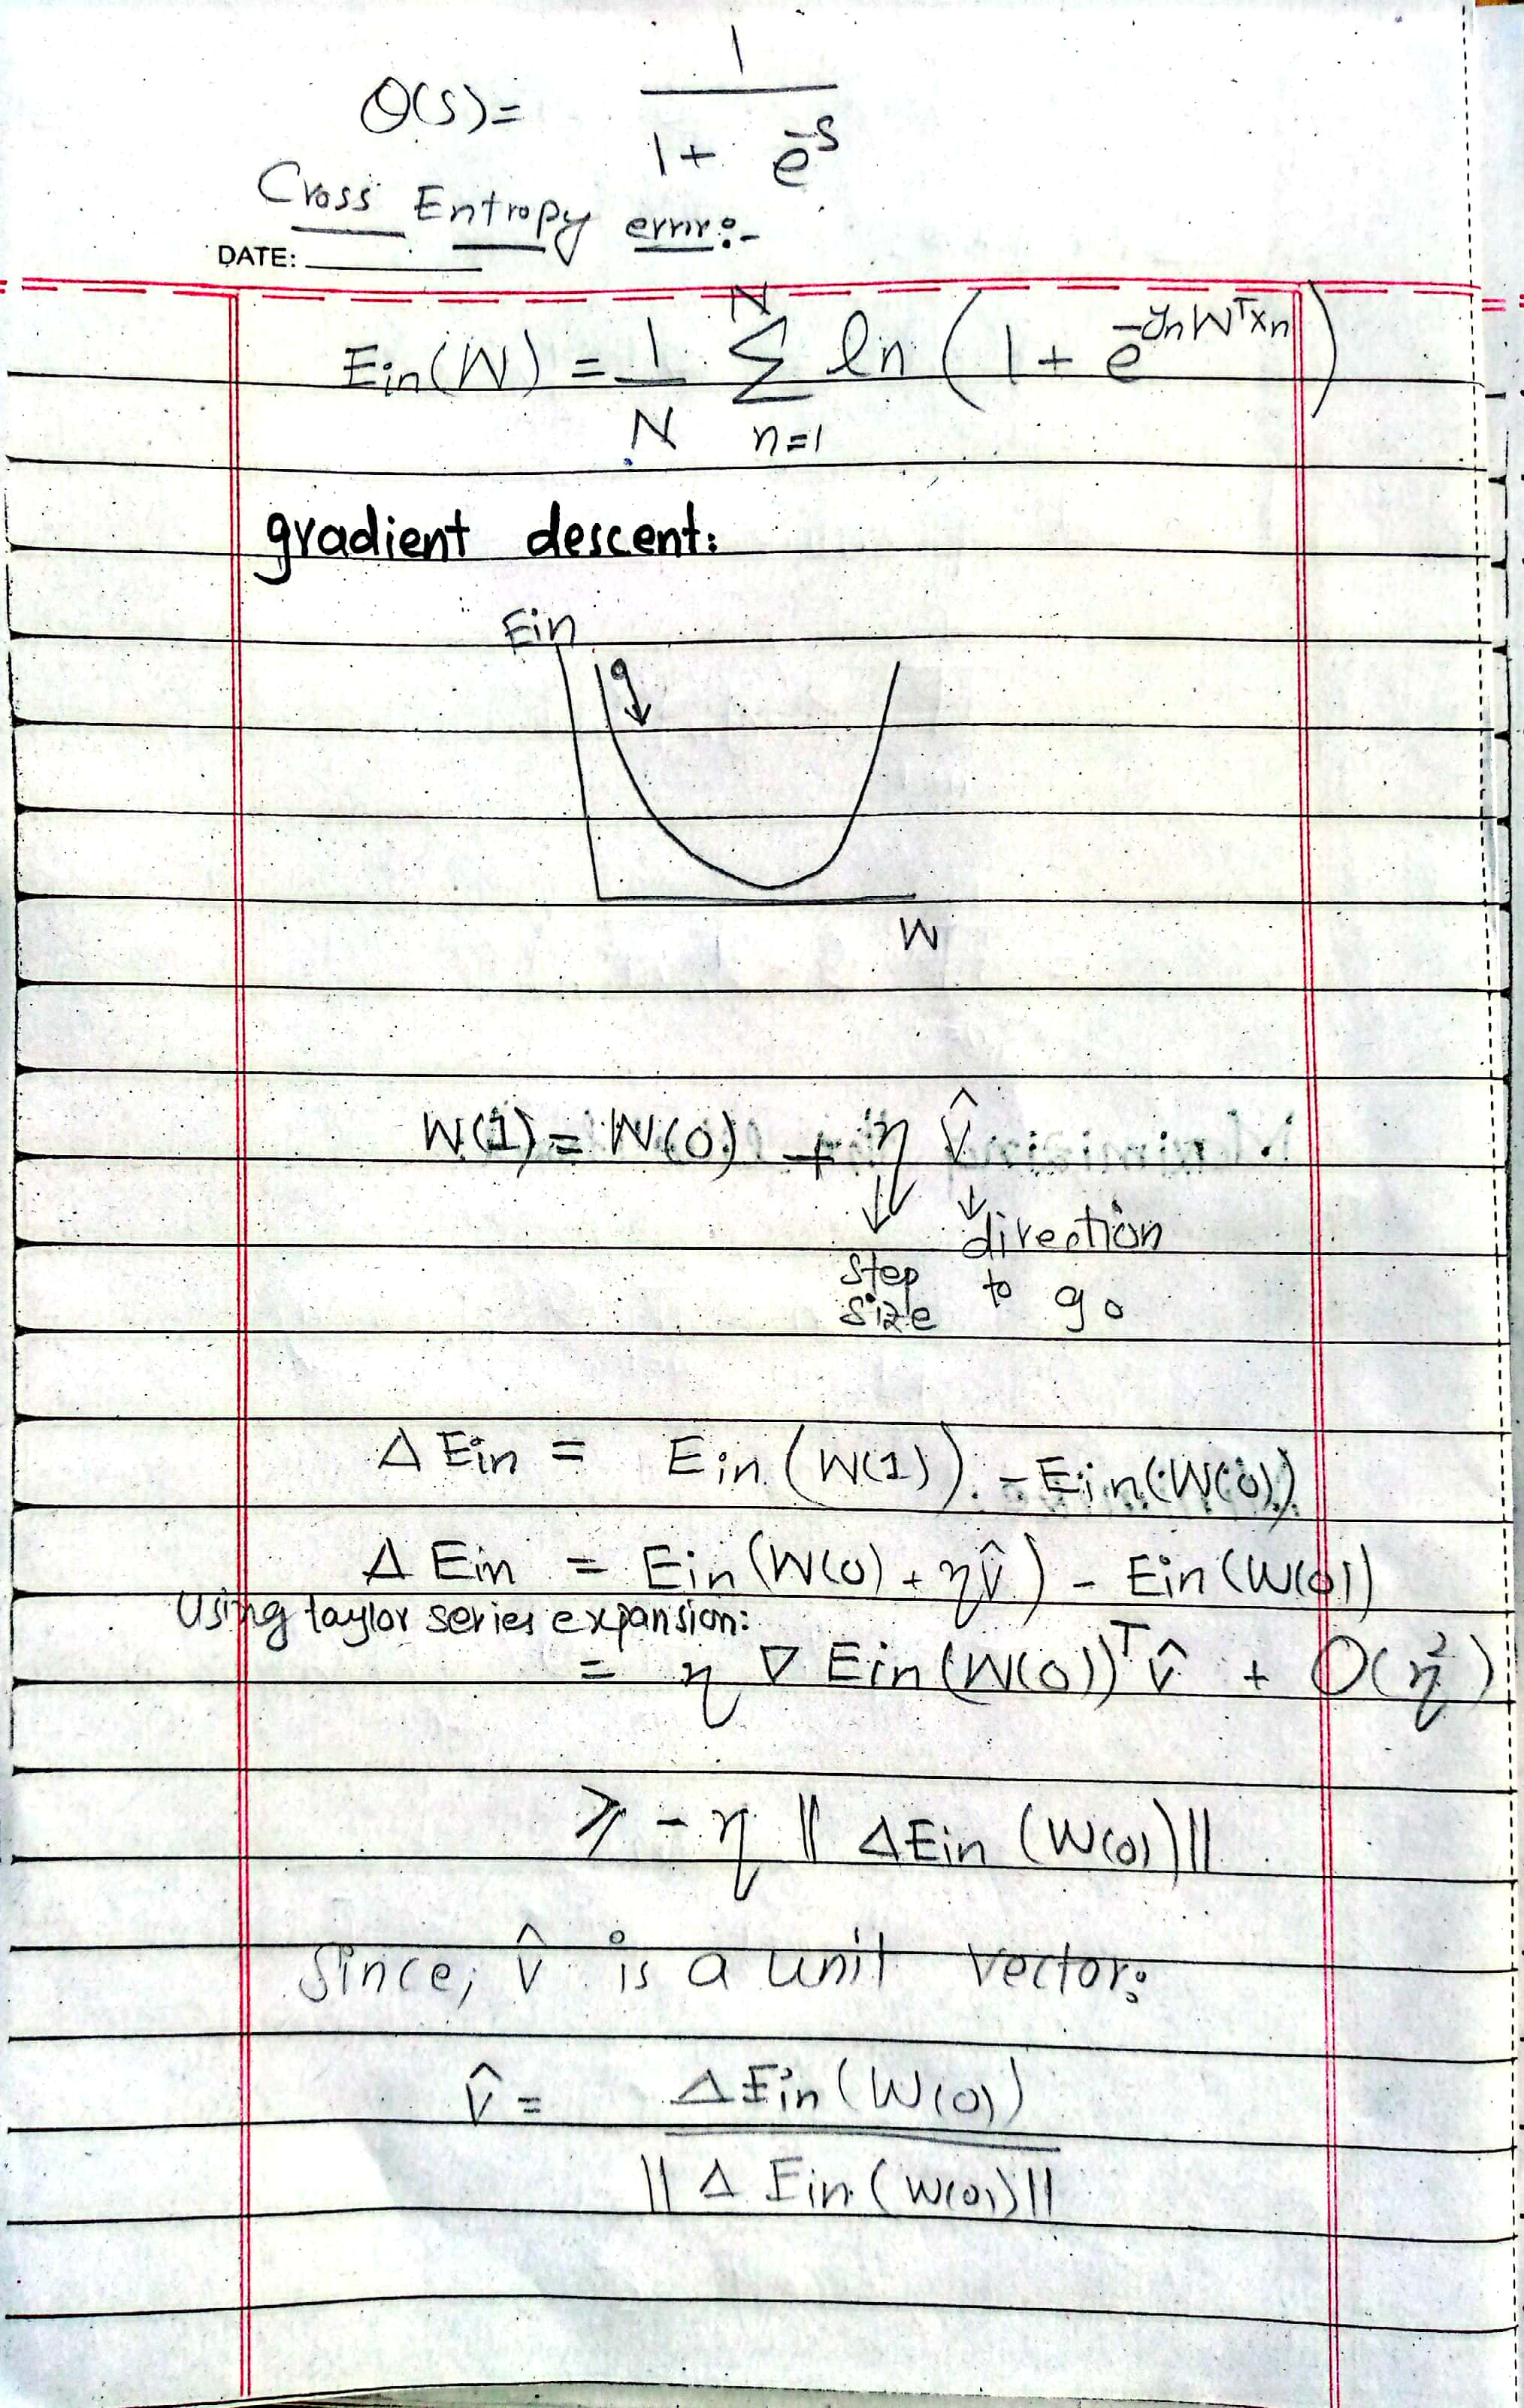 θ(s) = 1 / (1 + e^-s)
Cross Entropy error:-
DATE:
Ein(W) = 1/N N Σ n=1 ln (1 + e^-ynW^Txn)
gradient descent:
Ein
W
W(1) = W(0) + η v̂
↓ ↓
direction
step to go
size
Δ Ein = Ein (W(1)) - Ein(W(0))
Δ Ein = Ein (W(0) + ηv̂) - Ein (W(0))
Using taylor series expansion:
= η ∇ Ein (W(0))^T v̂ + O(η^2)
≥ - η || ΔEin (W(0)) ||
Since, v̂ is a unit vector:
v̂ = Δ Ein (W(0)) / || Δ Ein (W(0)) ||